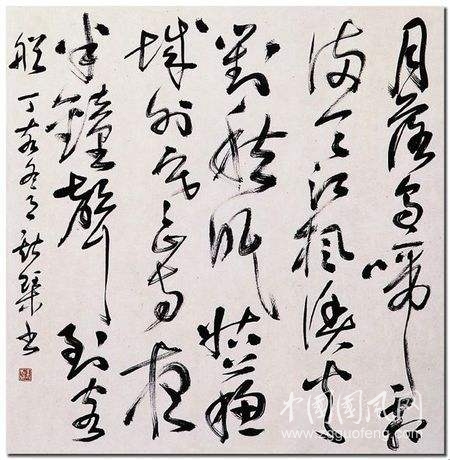 月落烏啼霜
滿天江楓漁火
對愁眠姑蘇
城外寒山寺夜
半鐘聲到客
船丁亥冬书
中国国风网
www.zgguofeng.com